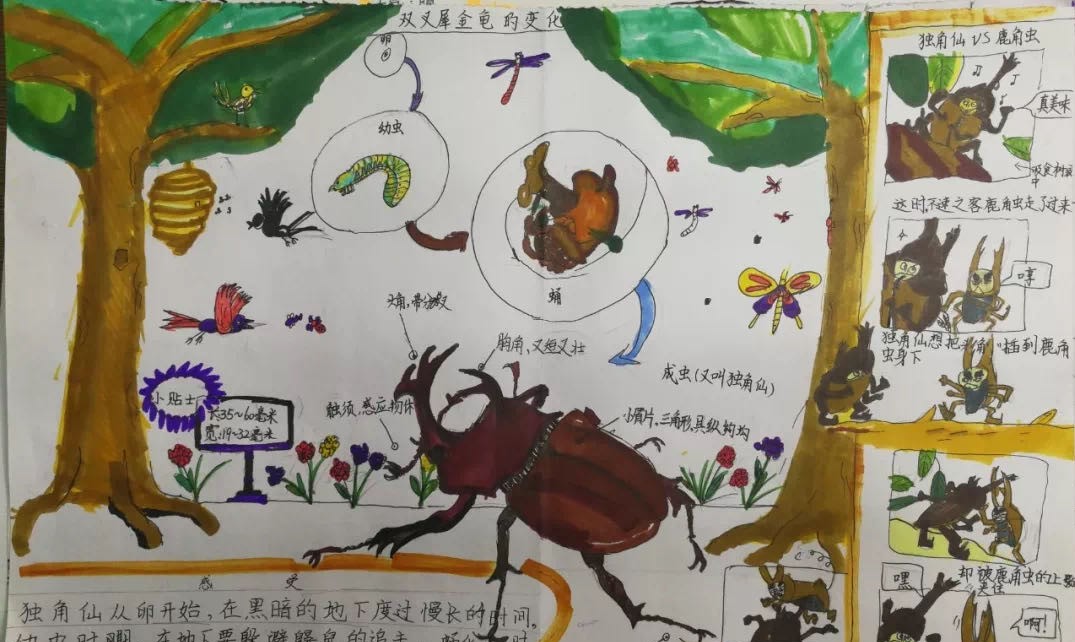 双叉犀金龟的变化
卵
幼虫
蛹
成虫(又叫独角仙)
头角,带分叉
胸角,又短又壮
触须,感应物体
小盾片,三角形,具纵钩沟
小贴士
长35~60毫米
宽:19~32毫米
感 受
独角仙从卵开始,在黑暗的地下度过慢长的时间,
独角仙VS鹿角虫
真美味
吸食树液
中
这时,不速之客鹿角虫走了过来
哼
独角仙想把“头角”插到鹿角
虫身下
却被鹿角虫的上颚
夹住
嘿
啊!